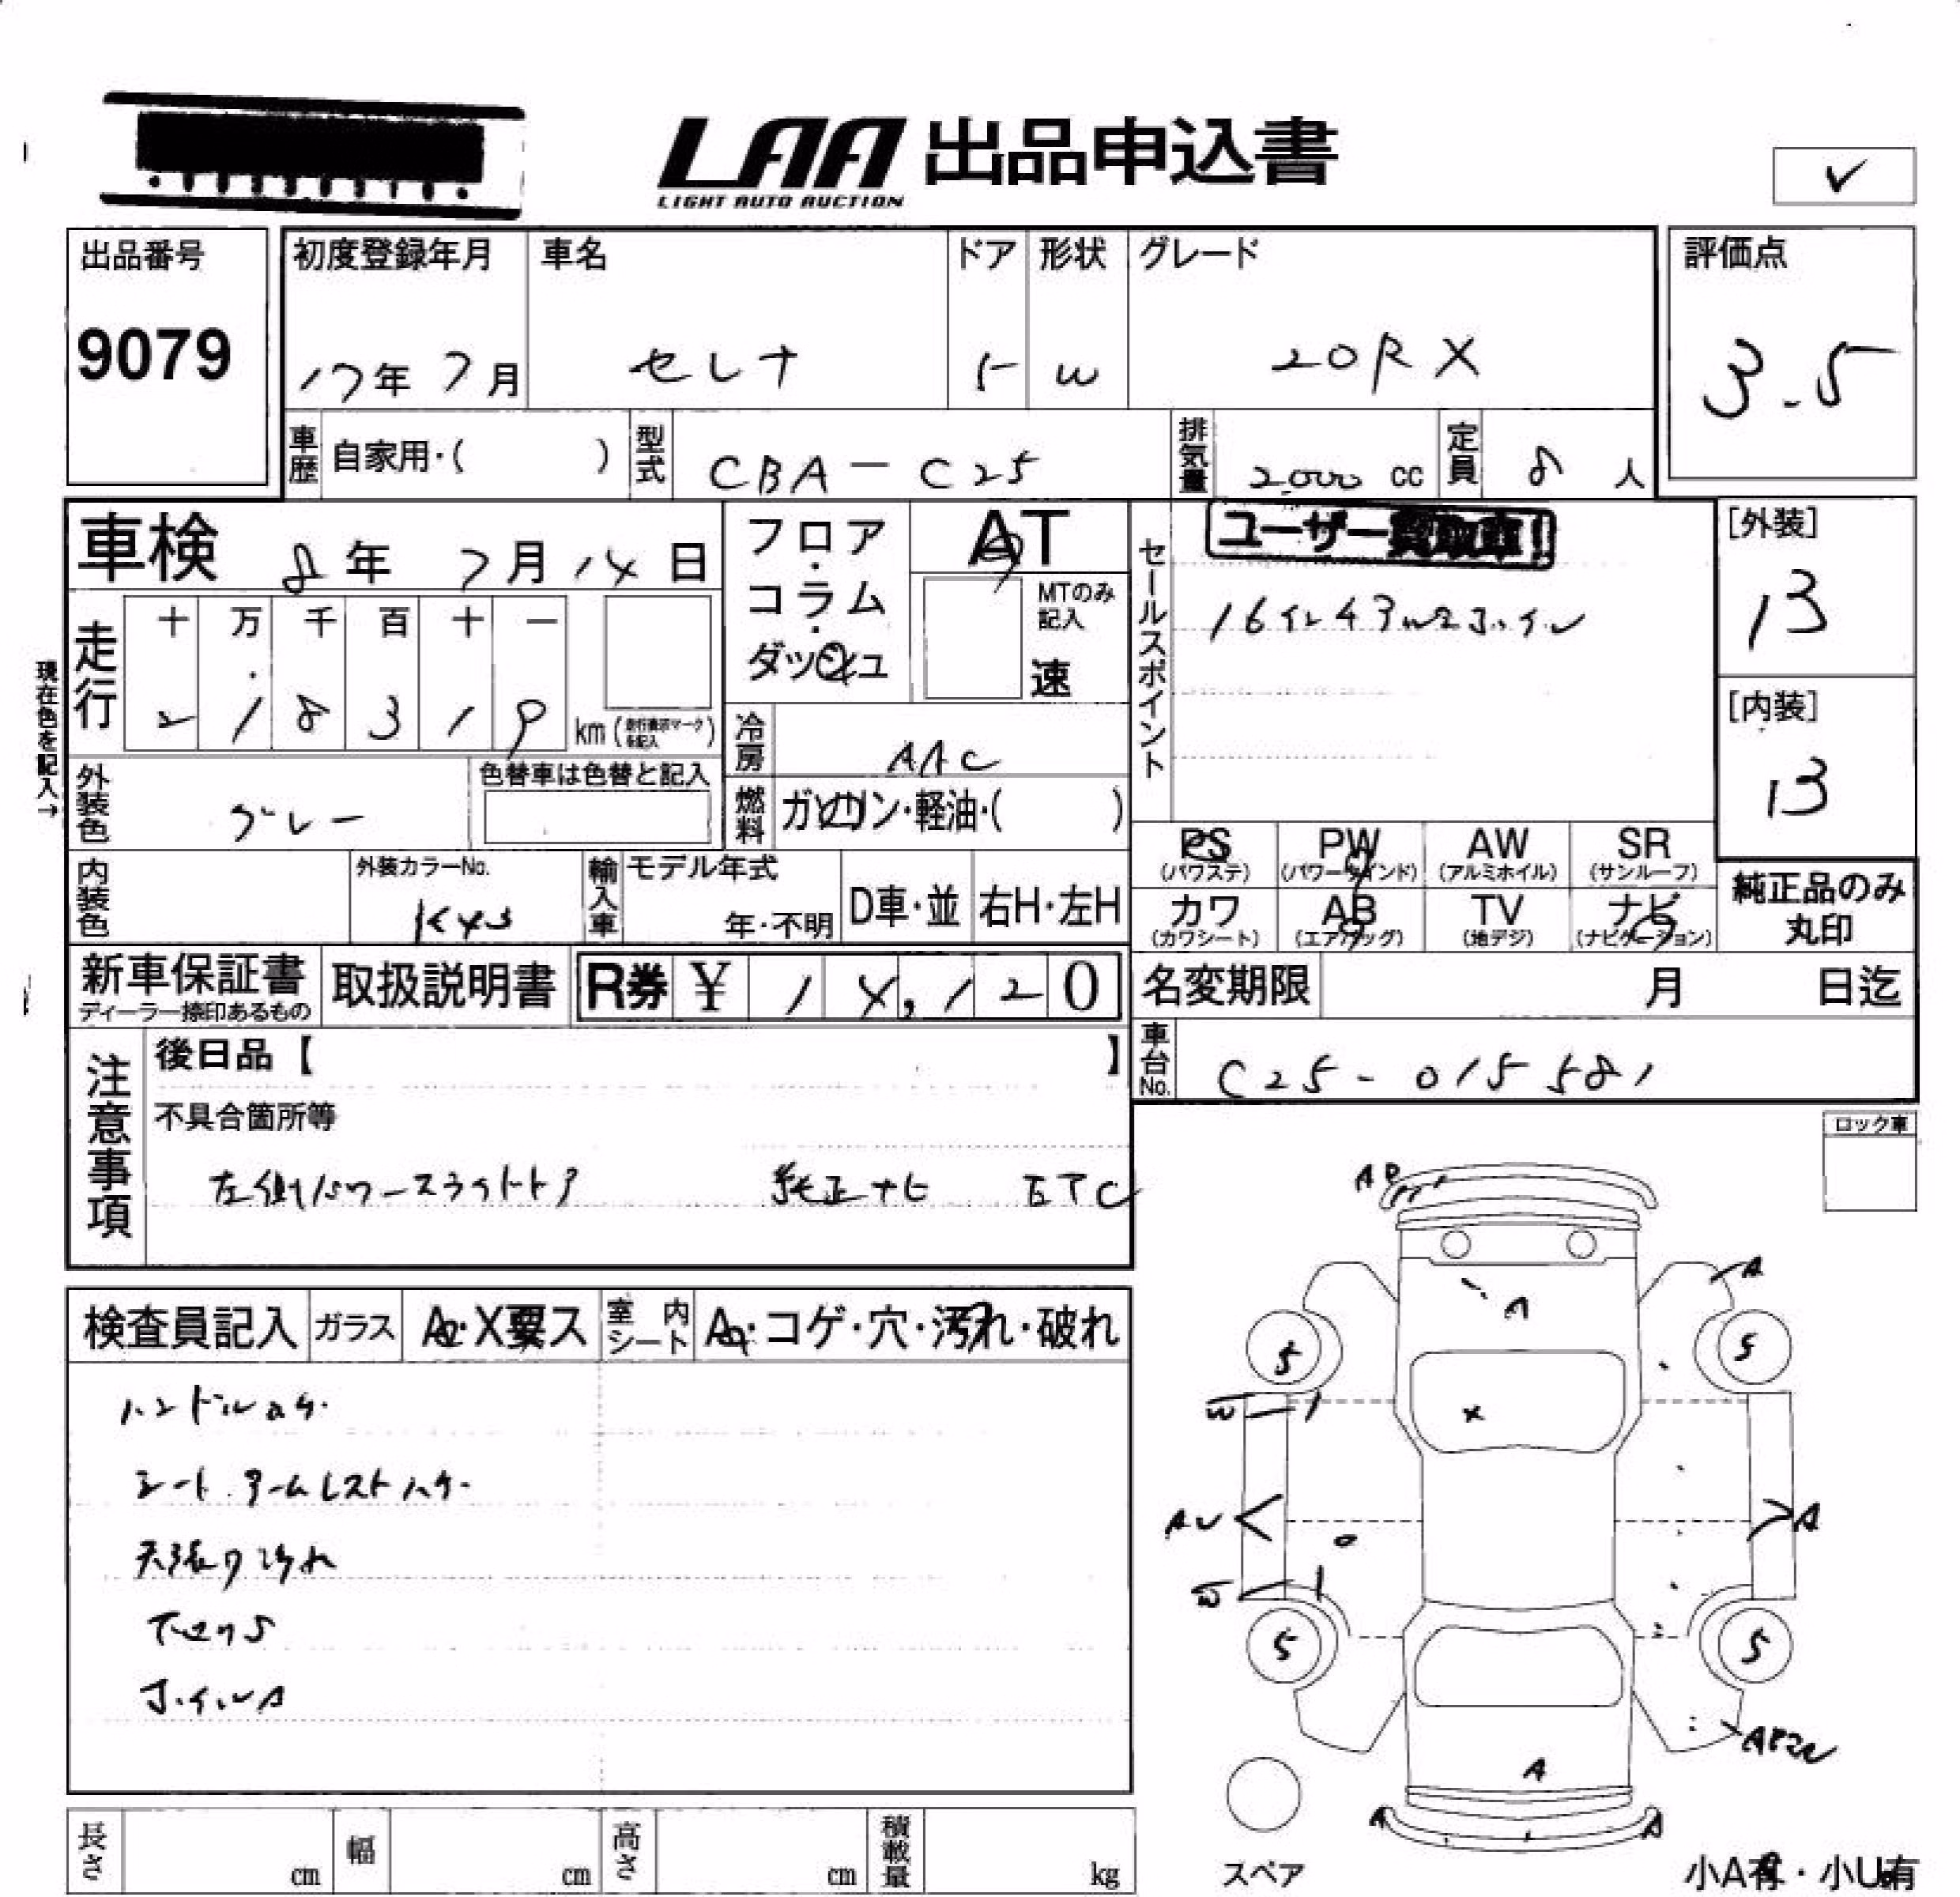 LAA 出品申込書
LIGHT AUTO AUCTION
✓
出品番号
9079
初度登録年月
17年 7月
車名
セレナ
ドア
5
形状
W
グレード
20RX
評価点
3.5
車歴 自家用・( )
型式 CBA-C25
排気量 2000 cc
定員 8 人
車検 8年 7月 14日
フロア・コラム・ダッシュ
AT
MTのみ記入
速
セールスポイント
ユーザー買取車!
[外装]
13
[内装]
13
現在色を記入→
走行
十 万 千 百 十 一
2 1 8 3 1 9 km
冷房 AAC
外装色 グレー
色替車は色替と記入
燃料 ガソリン・軽油・( )
内装色
外装カラーNo.
輸入車
モデル年式
年・不明
D車・並
右H・左H
PS
(パワステ)
PW
(パワーウインド)
AW
(アルミホイル)
SR
(サンルーフ)
カワ
(カワシート)
AB
(エアバッグ)
TV
(地デジ)
ナビ
(ナビゲーション)
純正品のみ
丸印
新車保証書
ディーラー捺印あるもの
取扱説明書
R券 ¥ 1 4,1 2 0
名変期限 月 日迄
車台No. C25-015581
注意事項
後日品【 】
不具合箇所等
左側パワースライドドア 純正ナビ ETC
ロック車
検査員記入
ガラス
A・X要ス
室内シート
A・コゲ・穴・汚れ・破れ
ハンドルスケ
シート アームレストハケ
天張り汚れ
下回りS
ホイルA
AP
A
A
5
5
W
X
AU
A
W
5
5
APコU
A
A
A
スペア
小A有・小U有
長さ cm
幅 cm
高さ cm
積載量 kg